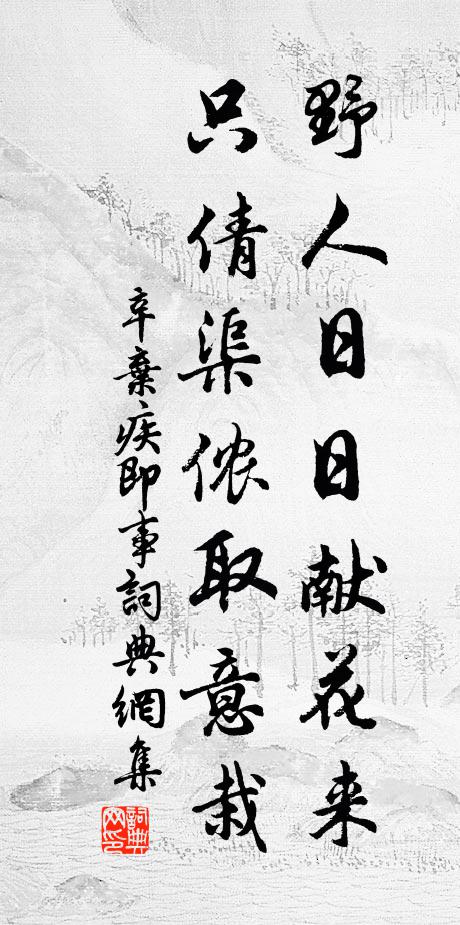 野人日日献花来
只倩渠侬取意栽
辛棄疾即事詞典網集
詞典网印